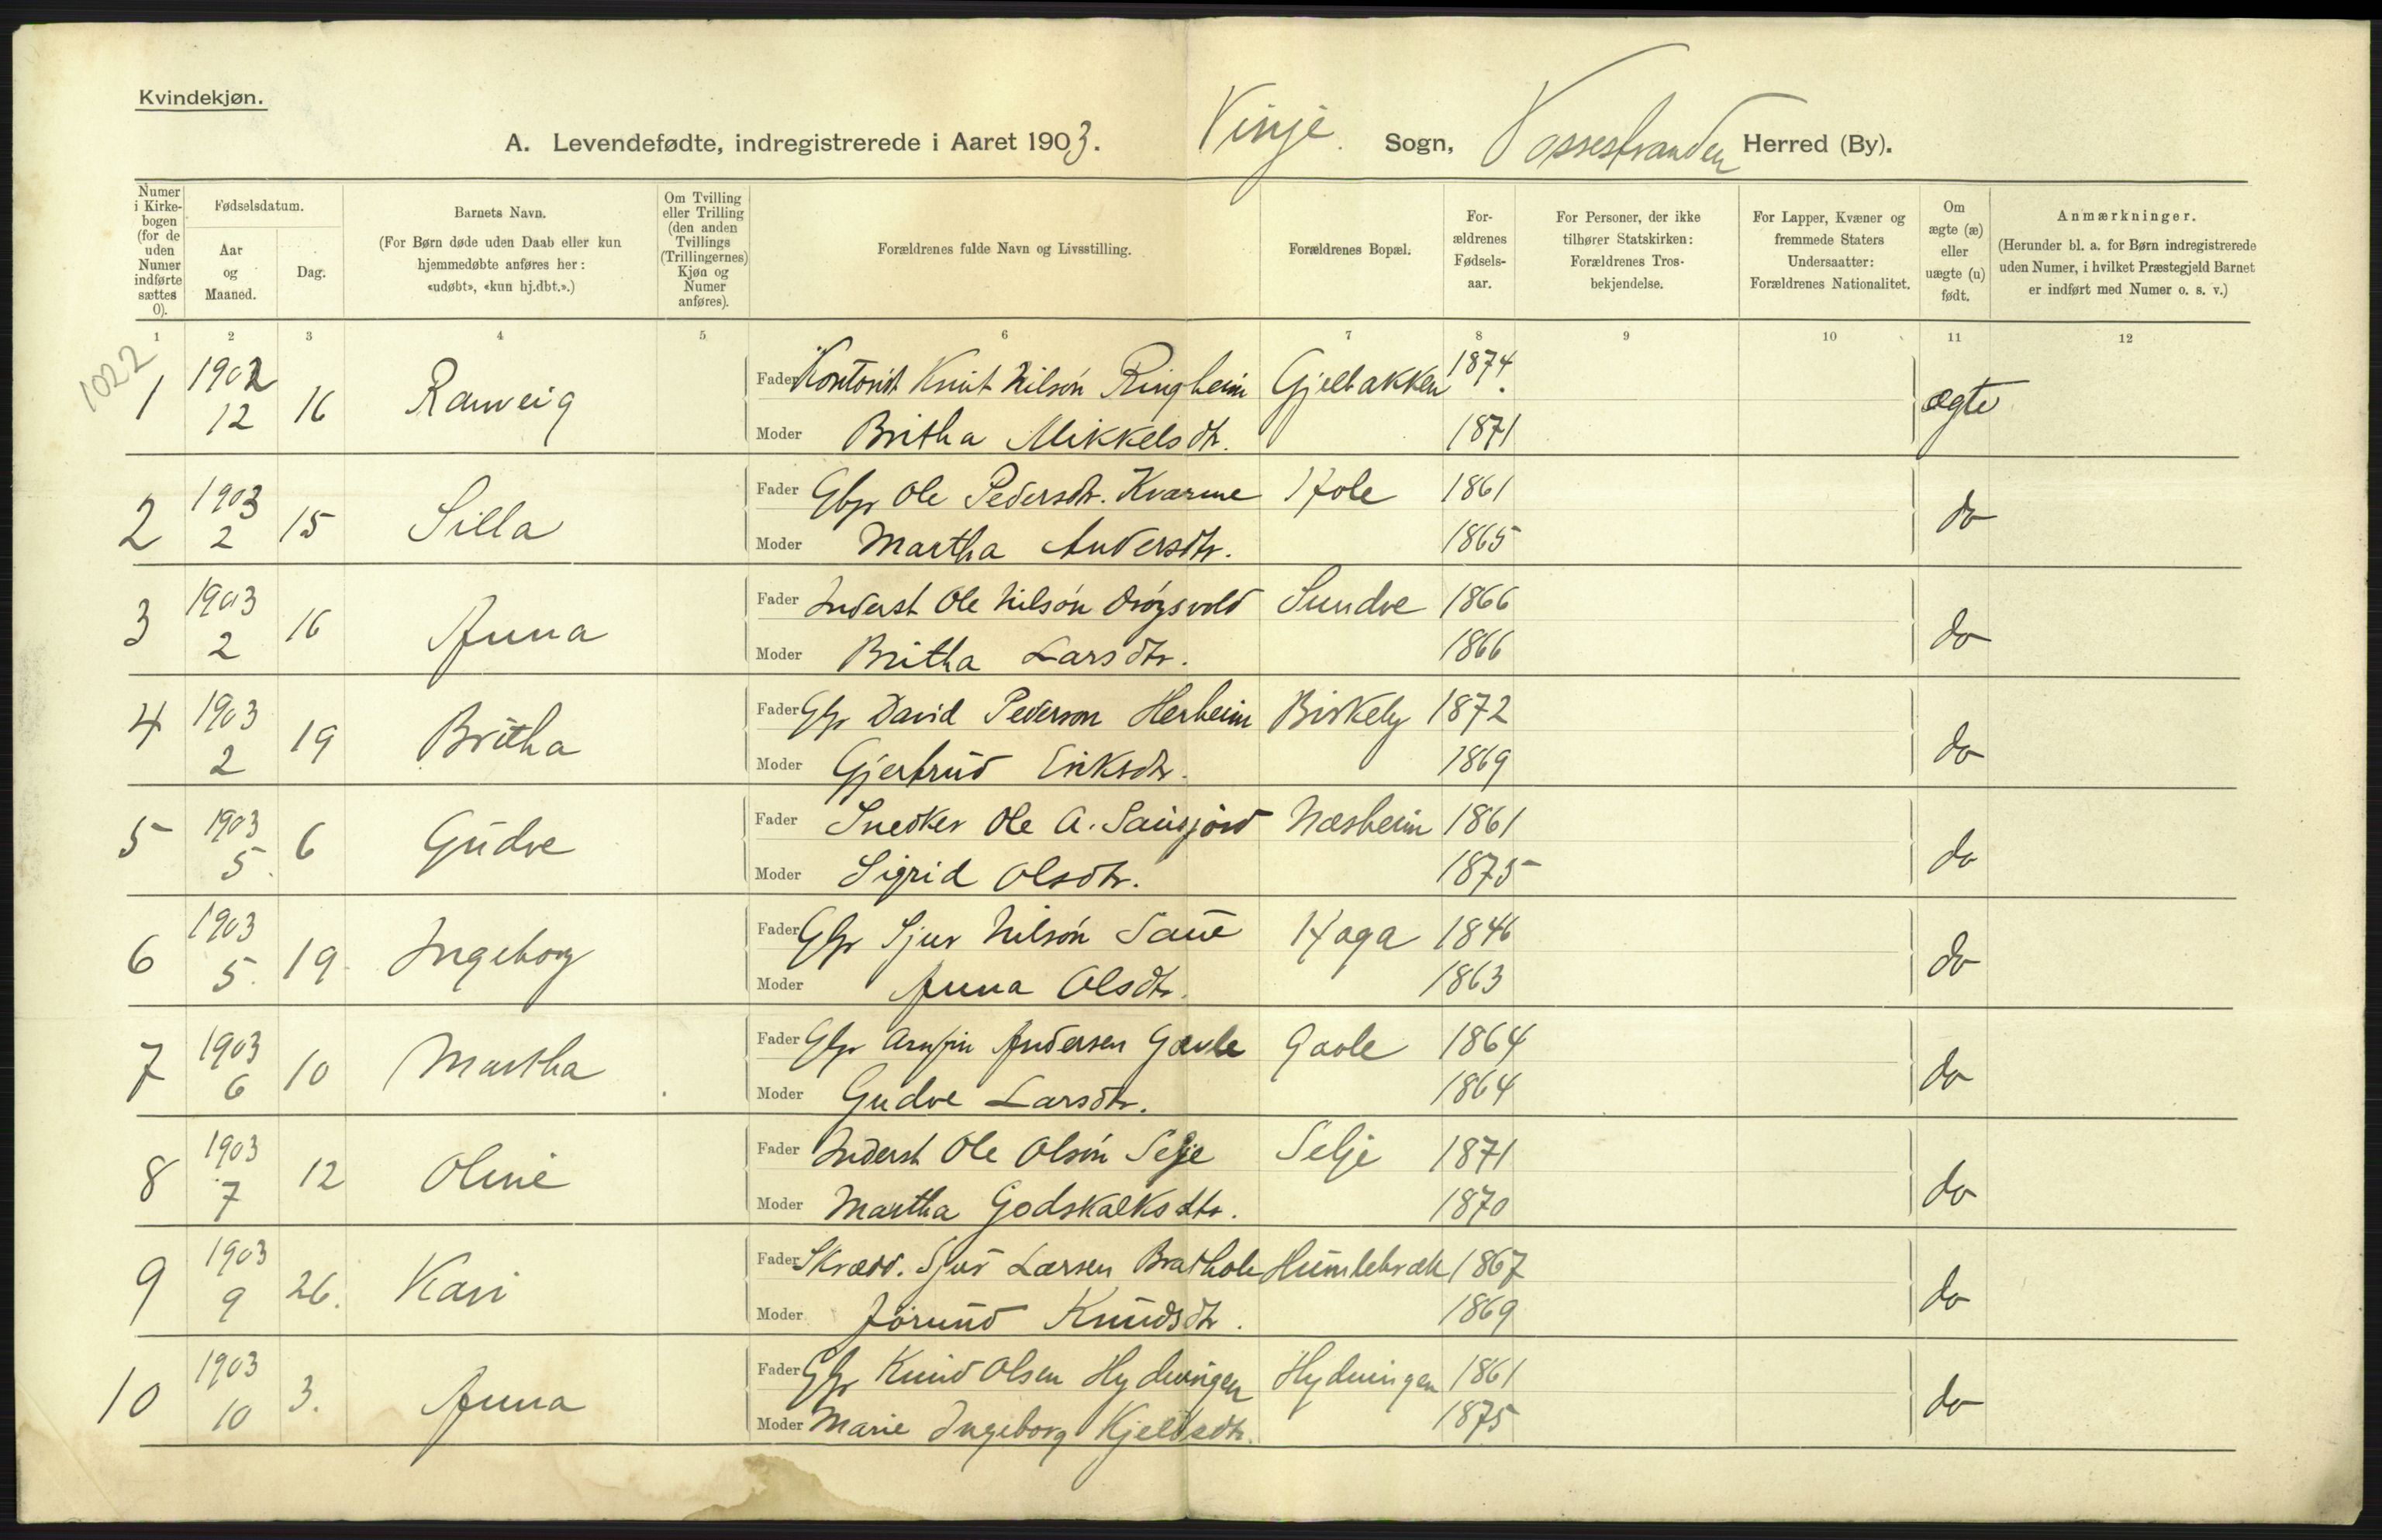 Kvindekjøn.
A. Levendefødte, indregistrerede i Aaret 1903. Vinje Sogn, Vossestranden Herred (By).
Numer i Kirkebogen (for de uden Numer indførte sættes 0).
Fødselsdatum.
Aar og Maaned.
Dag.
Barnets Navn.
(For Børn døde uden Daab eller kun hjemmedøbte anføres her: «udøbt», «kun hj.dbt.».)
Om Tvilling eller Trilling (den anden Tvillings (Trillingernes) Kjøn og Numer anføres).
Forældrenes fulde Navn og Livsstilling.
Forældrenes Bopæl.
For-ældrenes Fødsels-aar.
For Personer, der ikke tilhører Statskirken: Forældrenes Tros-bekjendelse.
For Lapper, Kvæner og fremmede Staters Undersaatter: Forældrenes Nationalitet.
Om ægte (æ) eller uægte (u) født.
Anmærkninger.
(Herunder bl. a. for Børn indregistrerede uden Numer, i hvilket Præstegjeld Barnet er indført med Numer o. s. v.)
1 2 3 4 5 6 7 8 9 10 11 12
1022
1 1902 12 16 Ranveig Fader Kontorist Knut Nilsön Ringheim Gjelbakken 1874. ægte
Moder Britha Mikkelsdtr. 1871
2 1903 2 15 Silla Fader Gbr Ole Pedersdtr. Kvarme Hole 1861 do
Moder Martha Andersdtr. 1865
3 1903 2 16 Anna Fader Inderst Ole Nilsön Sundve 1866 do
Moder Britha Larsdtr. 1866
4 1903 2 19 Britha Fader Gbr David Pederson Herheim Birkely 1872 do
Moder Gjertrud Eriksdtr. 1869
5 1903 5. 6 Gudve Fader Snedker Ole A. Næsheim 1861 do
Moder Sigrid Olsdtr. 1875
6 1903 5. 19 Ingeborg Fader Gbr Sjur Nilsön Saue Haga 1846 do
Moder Anna Olsdtr. 1863
7 1903 6 10 Martha Fader Gbr Arnfin Andersen Gavle Gavle 1864 do
Moder Gudve Larsdtr. 1864
8 1903 7 12 Oline Fader Inderst Ole Olsön Selje Selje 1871 do
Moder Martha Godskalksdtr. 1870
9 1903 9 26. Kari Fader Skrædd. Sjur Larsen Brathole Humlebræk 1867 do
Moder Jorund Knudsdtr. 1869
10 1903 10 3. Anna Fader Gbr Knud Olsen Hydningen Hydningen 1861 do
Moder Marie Ingeborg Kjeldsdtr. 1875